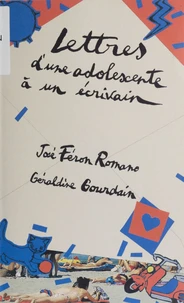 Lettres
d'une adolescente
à un écrivain
José Féron Romano
Géraldine Gourdain